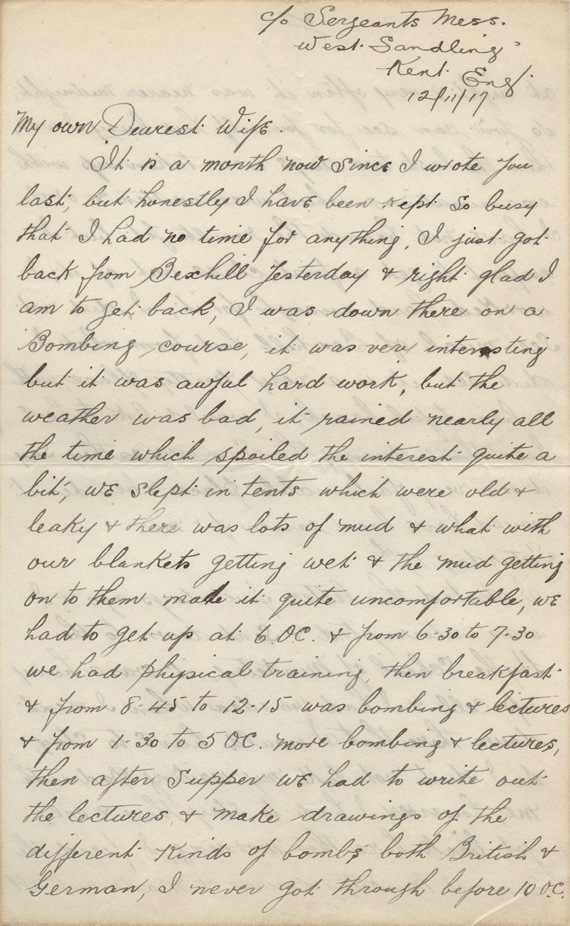 c/o Sergeants Mess.
West Sandling
Kent Eng.
12/11/17
My own Dearest Wife
It is a month now since I wrote you
last, but honestly I have been kept so busy
that I had no time for anything, I just got
back from Bexhill Yesterday & right glad I
am to get back, I was down there on a
Bombing course, it was very interesting
but it was awful hard work, but the
weather was bad, it rained nearly all
the time which spoiled the interest quite a
bit, we slept in tents which were old &
leaky & there was lots of mud & what with
our blankets getting wet & the mud getting
on to them made it quite uncomfortable, we
had to get up at 6.OC. & from 6-30 to 7-30
we had Physical training, then breakfast
& from 8-45 to 12-15 was bombing & lectures
& from 1-30 to 5 OC. more bombing & lectures,
then after Supper we had to write out
the lectures & make drawings of the
different Kinds of bombs both British &
German, I never got through before 10 OC.